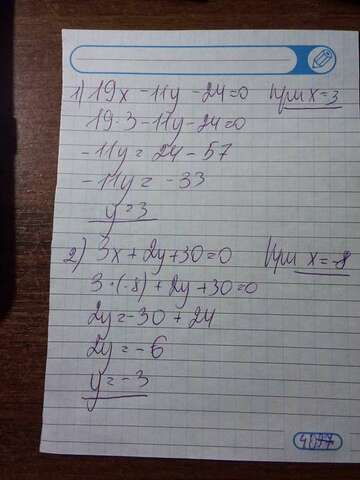 1) 19x - 11y - 24 = 0 при x = 3
19·3 - 11y - 24 = 0
- 11y = 24 - 57
- 11y = - 33
y = 3
2) 3x + 2y + 30 = 0 при x = -8
3·(-8) + 2y + 30 = 0
2y = -30 + 24
2y = - 6
y = - 3